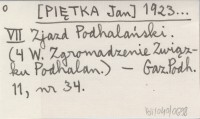 o [PIĘTKA Jan] 1923...
VII Zjazd Podhalański.
(4 W. Zgromadzenie Związ-
ku Podhalan.) — Gaz.Podh.
11, nr 34.